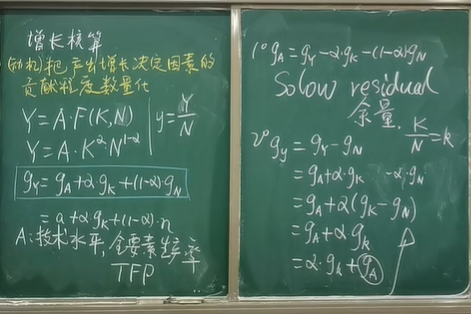 增长核算
(动机)把产出增长决定因素的
贡献程度数量化
Y=A·F(K,N)
y=Y/N
Y=A·K^α N^(1-α)
g_Y=g_A+α g_K+(1-α)·g_N
=a+α g_K+(1-α)·n
A:技术水平,全要素生产率
TFP
1° g_A=g_Y-α·g_K-(1-α)g_N
Solow residual
余量.
K/N=k
2° g_y=g_Y-g_N
=g_A+α·g_K -α·g_N
=g_A+α(g_K-g_N)
=g_A+α g_k
=α·g_k+g_A